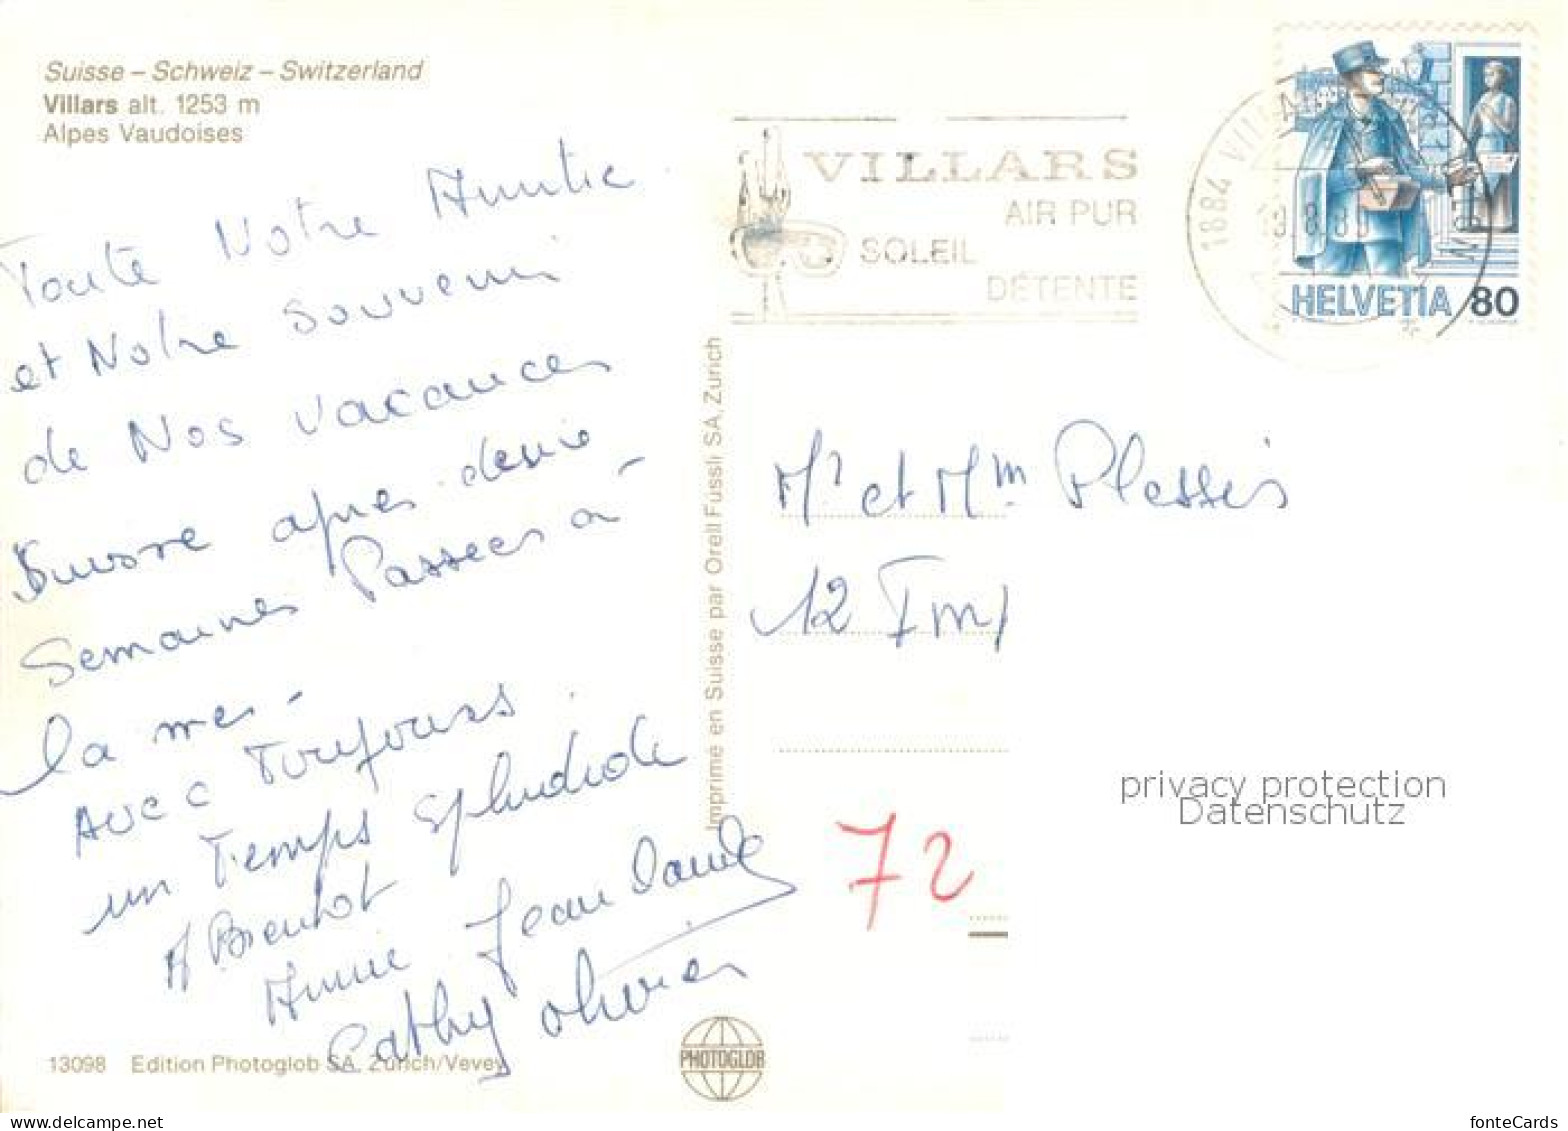 Suisse – Schweiz – Switzerland
Villars alt. 1253 m
Alpes Vaudoises
Toute Notre Amitie
et Notre Souvenir
de Nos vacances
Suisse apres deux
Semaines Passees à
la mer -
Avec Toujours
un Temps splendide
A Bientot
Annie Jean Claude
Cathy Olivier
13098 Edition Photoglob SA, Zürich/Vevey
PHOTOGLOB
Imprimé en Suisse par Orell Füssli SA, Zürich
VILLARS
AIR PUR
SOLEIL
DÉTENTE
1884 VILLARS
HELVETIA 80
Mr et Mm Plessis
12 Imp
72
privacy protection
Datenschutz
fonteCards